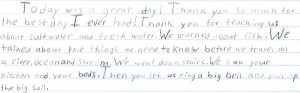 Today was a great day! Thank you so much for
the best day I ever had! Thank you for teaching us
about saltwater and fresh water. We learned about fish. We
talked about the things we need to know before we travel on
a river, ocean and stream. We went downstairs. We saw your
kitchen and your beds. Then you let us ring a big bell and pull up
the big sail.